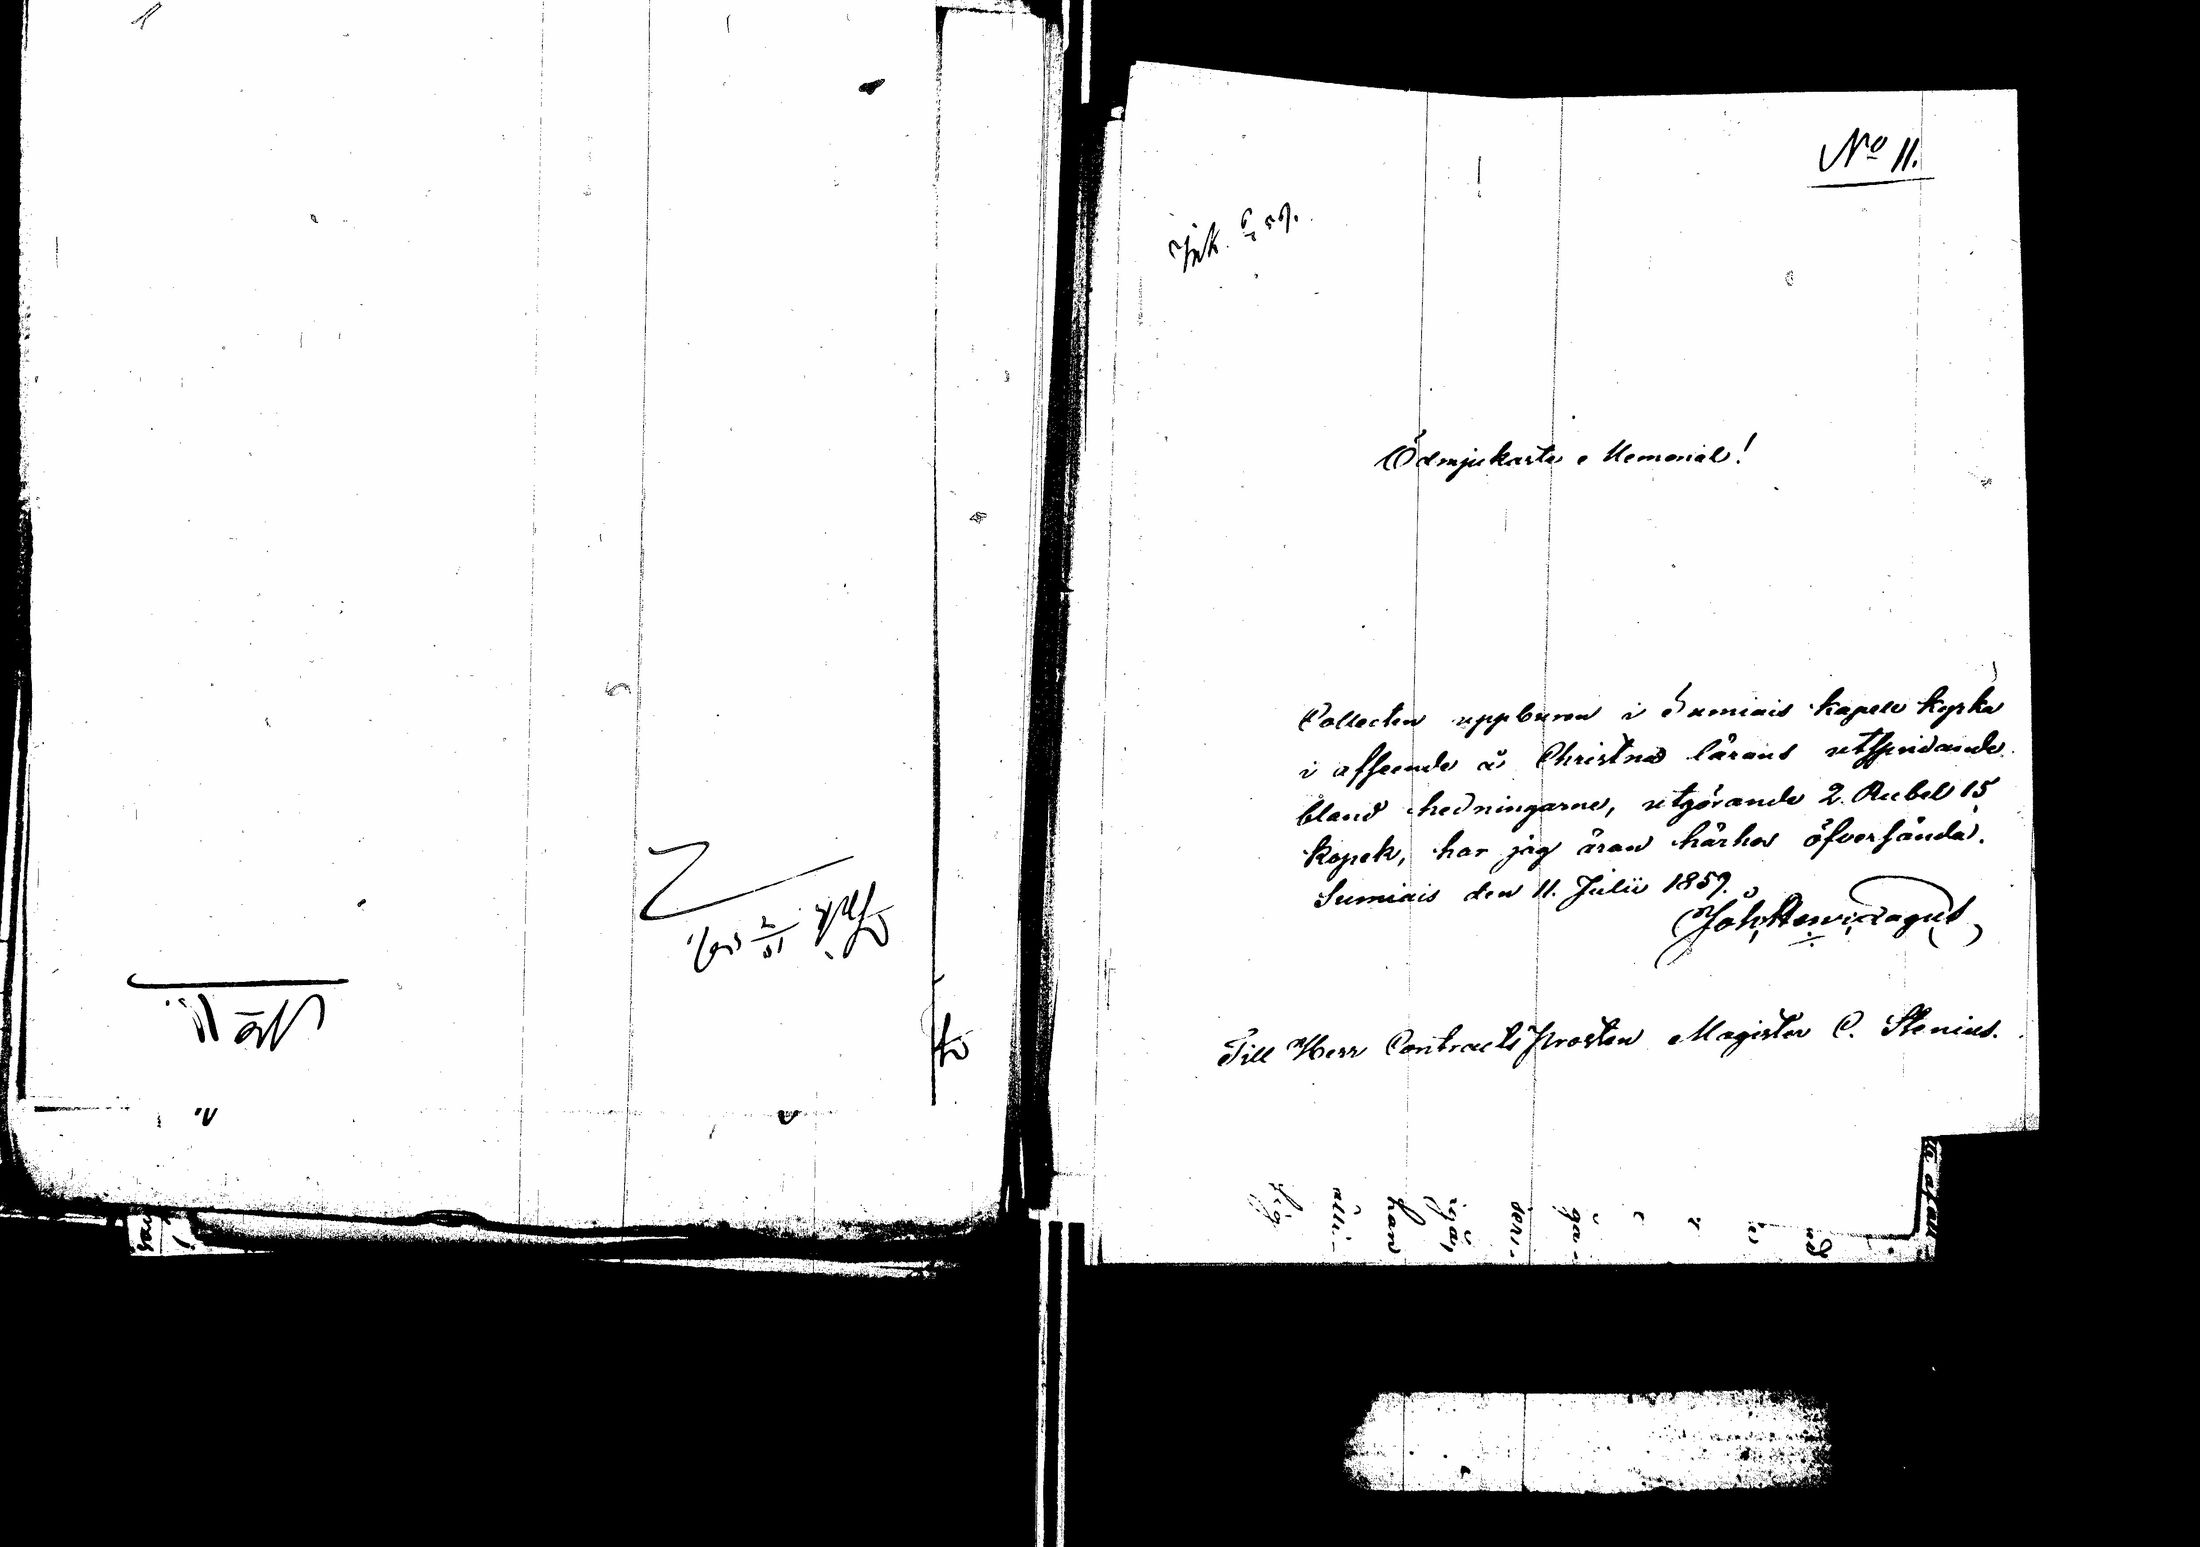 No 11.
Ink.
Ödmjukaste Memorial!
Collecten uppburen i Sumiais kapell kyrka
i afseende å Christna lärans utspridande
bland hedningarne, utgörande 2. Rubel 15
kopek, har jag äran härhos öfversända.
Sumiais den 11. Julii 1859.
Joh. Henr.
Till Herr ContractsProsten Magister C. Stenius.
han